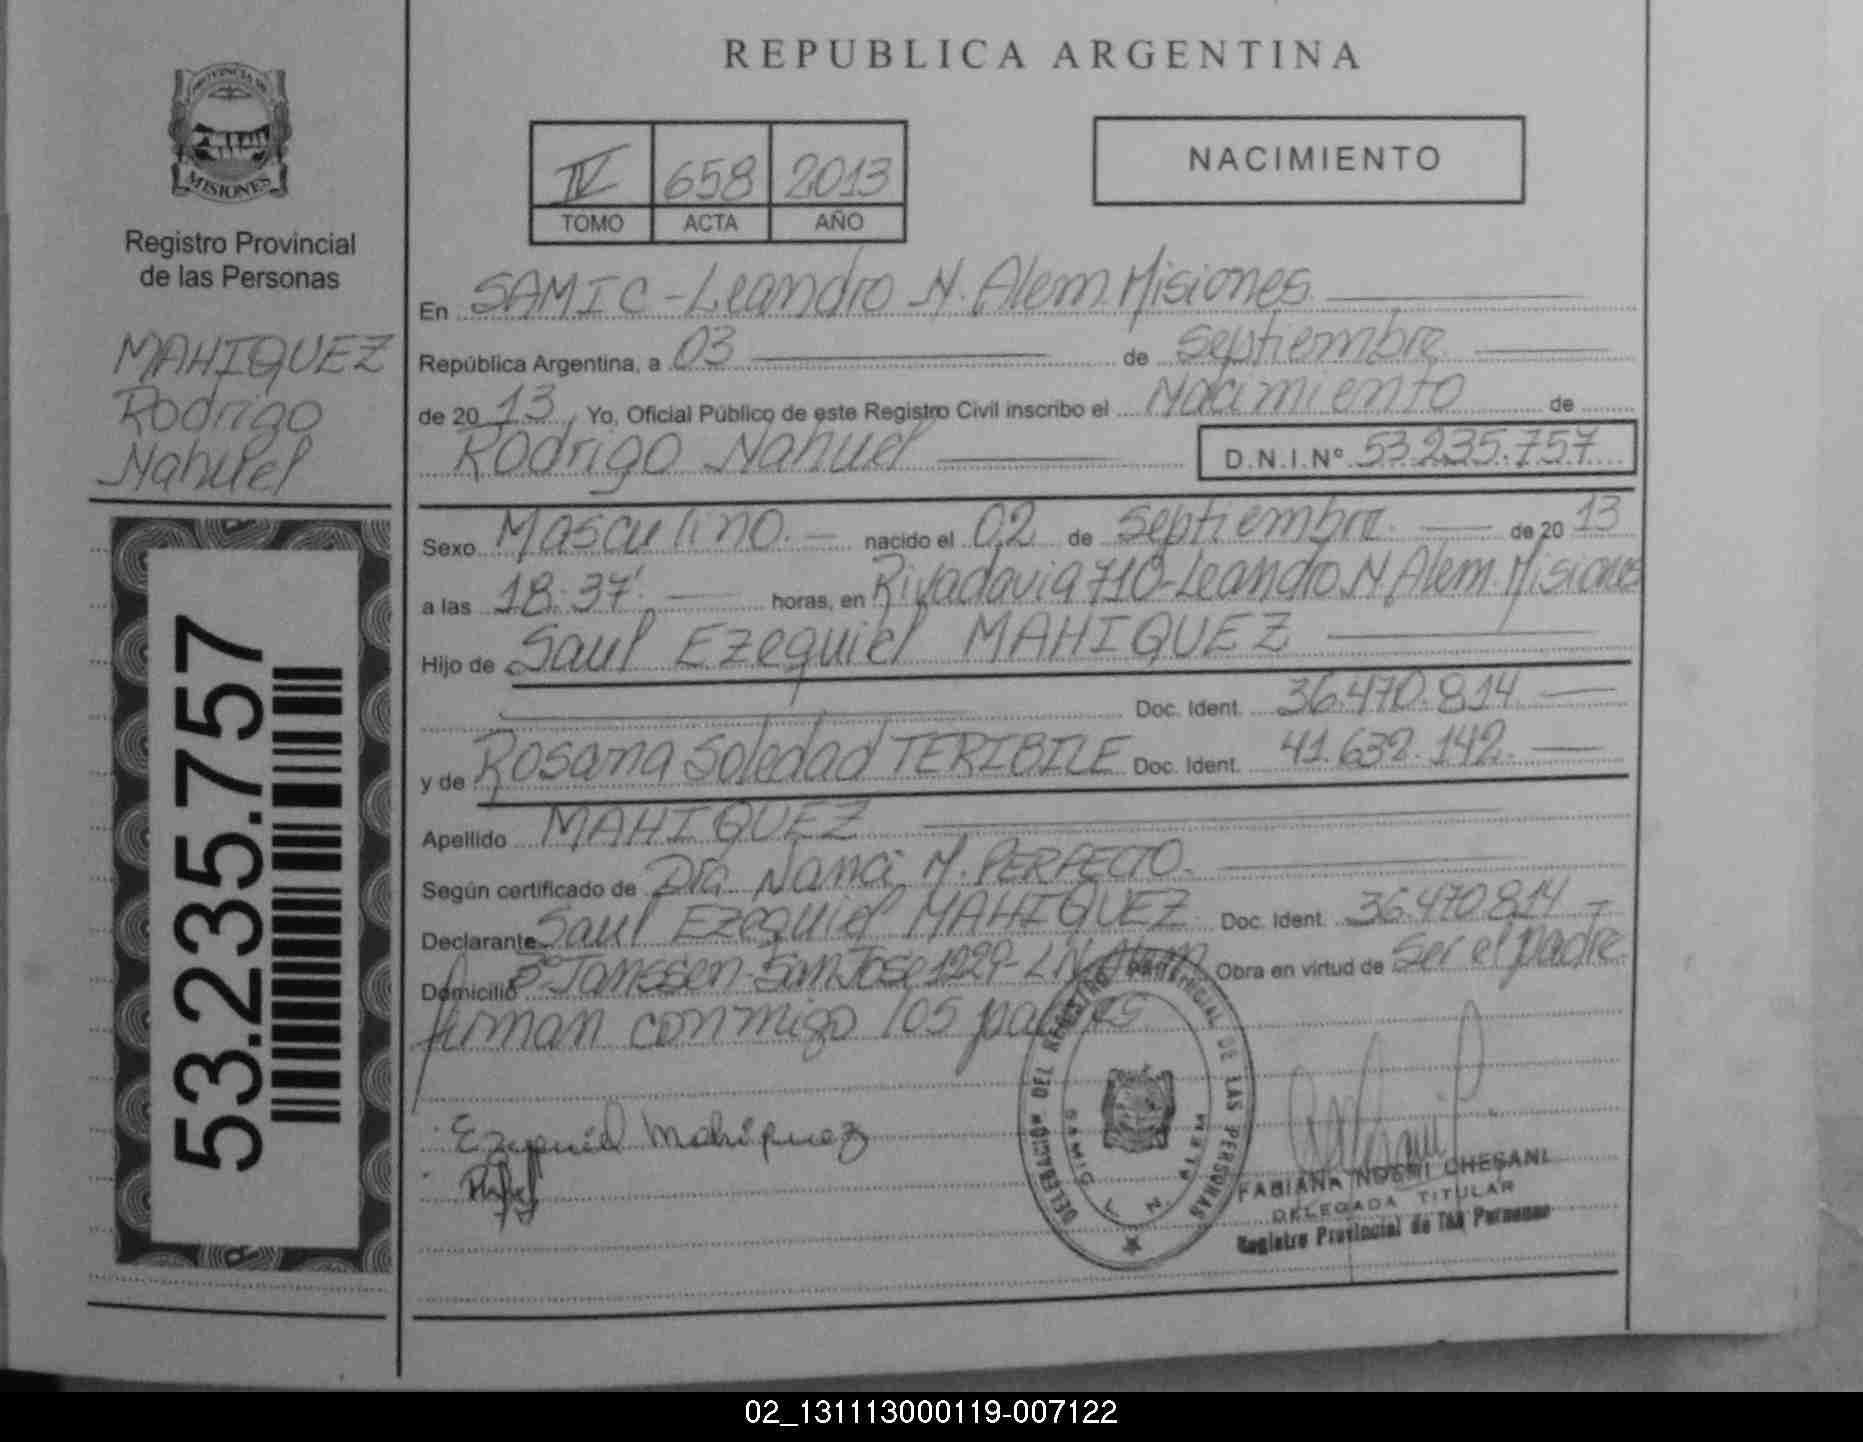 REPUBLICA ARGENTINA
PROVINCIA DE
MISIONES
Registro Provincial
de las Personas
MAHIQUEZ
Rodrigo
Nahuel
53.235.757
IV 658 2013
TOMO ACTA AÑO
NACIMIENTO
En SAMIC - Leandro N. Alem. Misiones
República Argentina, a 03 de septiembre
de 20 13, Yo, Oficial Público de este Registro Civil inscribo el Nacimiento de
Rodrigo Nahuel D.N.I.Nº 53.235.757
Sexo Masculino. nacido el 02 de septiembre. de 20 13
a las 18:37. horas, en Rivadavia 710-Leandro N. Alem. Misiones
Hijo de Saul Ezequiel MAHIQUEZ
Doc. Ident. 36.470.814
y de Rosana Soledad TERIBILE Doc. Ident. 41.632.142.
Apellido MAHIQUEZ
Según certificado de Dra. Nanci M. PERFECTO.
Declarante Saul Ezequiel MAHIQUEZ Doc. Ident. 36.470.814
Domicilio Janssen - San Jose 1229 - L.N. Alem Obra en virtud de ser el padre.
firman conmigo los padres
Ezequiel Mahiquez
DELEGACION DEL REGISTRO PROVINCIAL DE LAS PERSONAS
SAMIC L. N. ALEM
FABIANA NOEMI CHESANI
DELEGADA TITULAR
Registro Provincial de las Personas
02_131113000119-007122